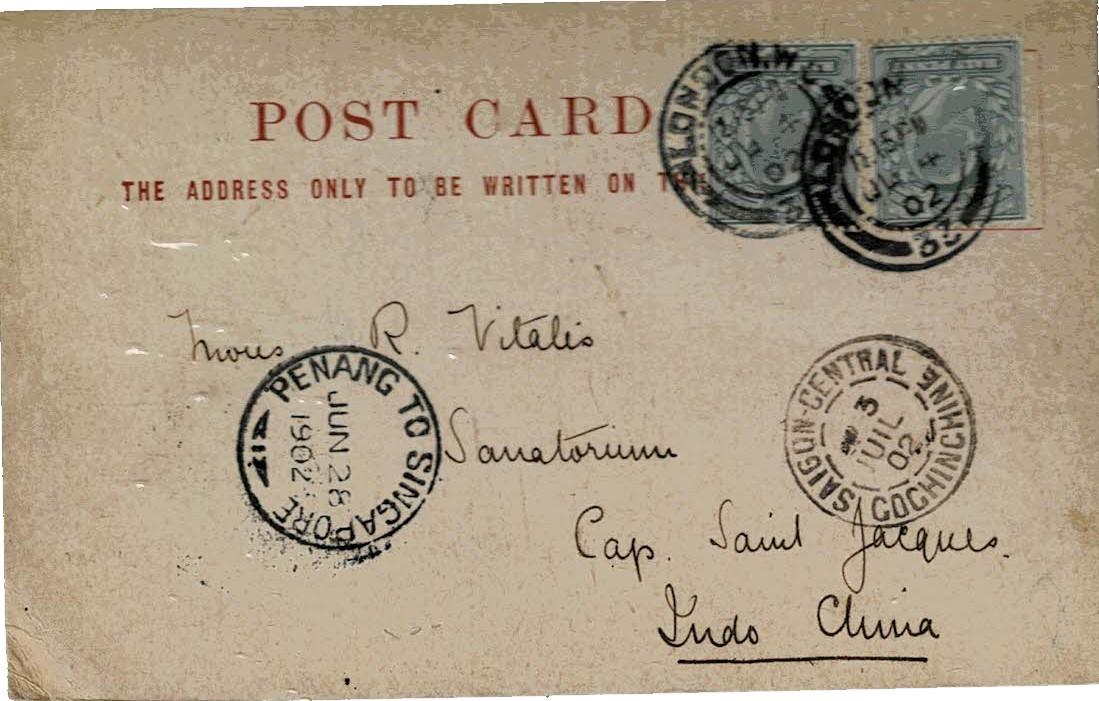 POST CARD
THE ADDRESS ONLY TO BE WRITTEN ON
LONDON.W
02
LONDON
02
33
Mons R. Vitalis
Sanatorium
Cap. Saint Jacques.
Indo China
PENANG TO SINGAPORE
JUN 28
1902
SAIGON-CENTRAL
COCHINCHINE
3
JUIL
02